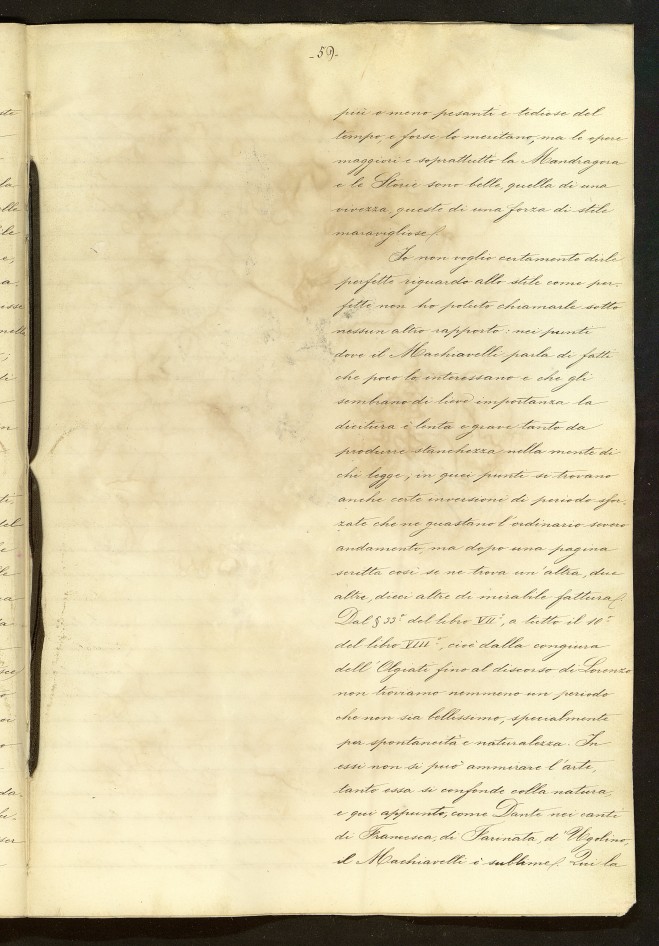 - 59 -
più o meno pesanti e tediose del
tempo, e forse lo meritano, ma le opere
maggiori e soprattutto la Mandragora
e le Storie sono belle, quella di una
vivezza, queste di una forza di stile
maravigliose.
Io non voglio certamente dirle
perfette riguardo allo stile come per-
fette non ho potuto chiamarle sotto
nessun altro rapporto: nei punti
dove il Machiavelli parla di fatti
che poco lo interessano e che gli
sembrano di lieve importanza la
dicitura è lenta e grave tanto da
produrre stanchezza nella mente di
chi legge; in quei punti si trovano
anche certe inversioni di periodo sfor-
zate che ne guastano l'ordinario severo
andamento, ma dopo una pagina
scritta così se ne trova un'altra, due
altre, dieci altre di mirabile fattura.
Dal § 33° del libro VII°, a tutto il 10°
del libro VIII°, cioè dalla congiura
dell'Olgiati fino al discorso di Lorenzo
non troviamo nemmeno un periodo
che non sia bellissimo, specialmente
per spontaneità e naturalezza. In
essi non si può ammirare l'arte,
tanto essa si confonde colla natura
e qui appunto, come Dante nei canti
di Francesca, di Farinata, d'Ugolino,
il Machiavelli è sublime. Qui la